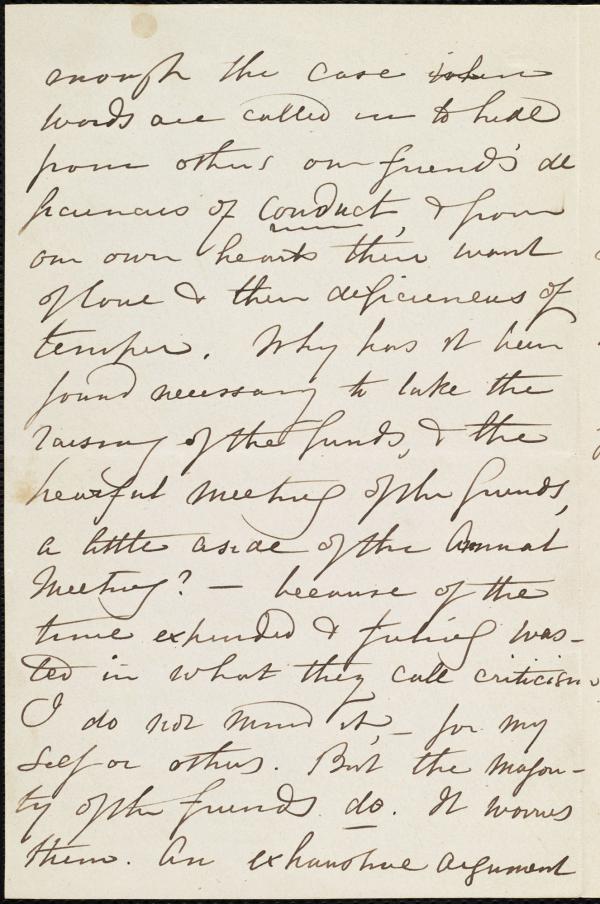 enough the case when
words are called in to hide
from others our friends' de
ficiencies of conduct, & from
our own hearts their want
of love & their deficiencies of
temper. Why has it been
found necessary to take the
raising of the funds, & the
hearful meeting of the friends,
a little aside of the Annual
Meeting? — because of the
time expended & feeling was-
ted in what they call criticism.
I do not mind it, — for my
self or others. But the majori-
ty of the friends do. It worries
them. An exhaustive argument